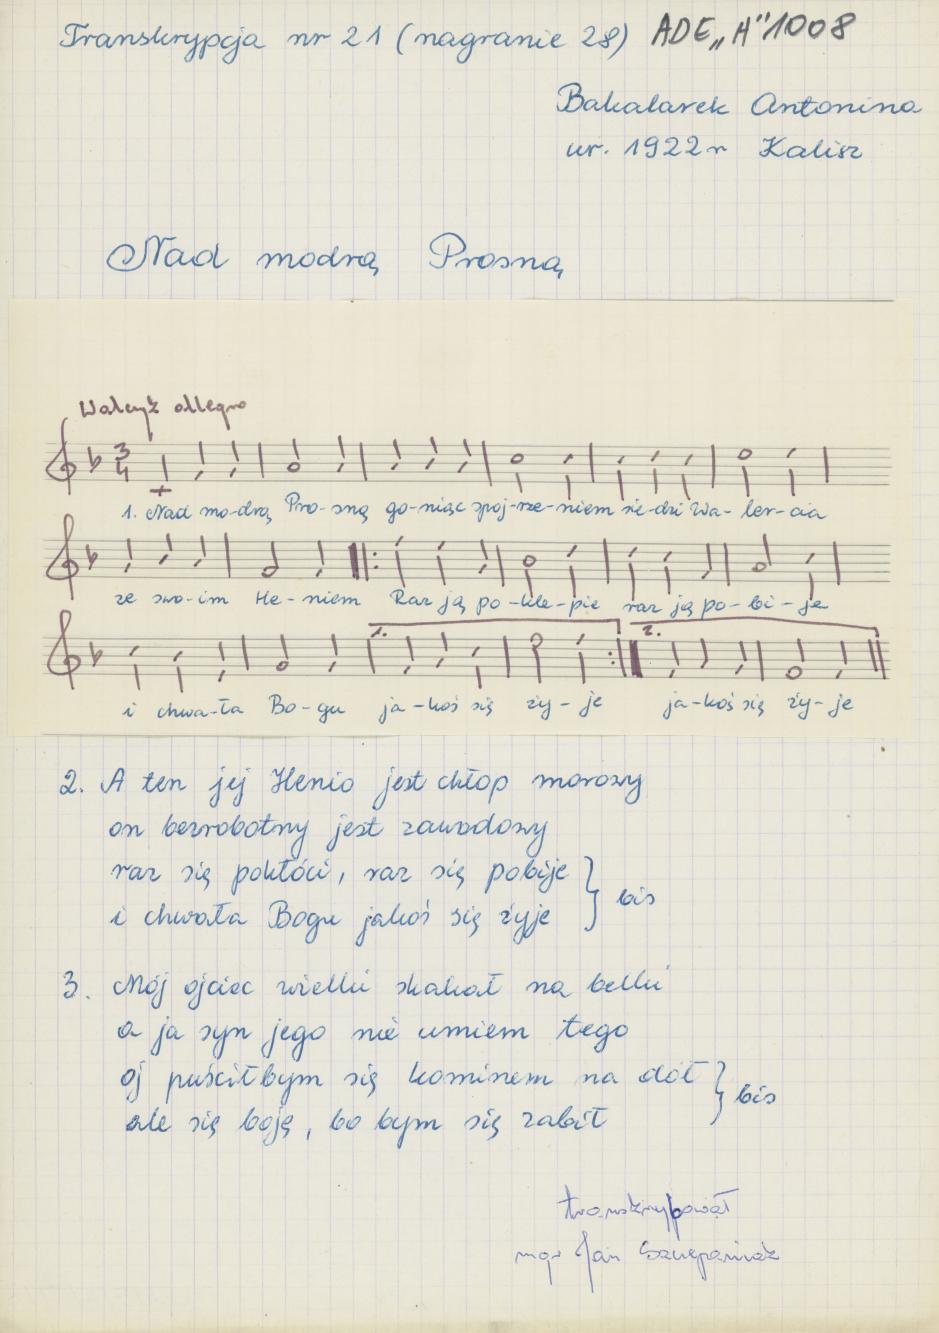 Transkrypcja nr 21 (nagranie 28) ADE „H" 1008
Bakalarek Antonina
ur. 1922 r Kalisz
Nad modrą Prosną
Walczyk allegro
3
4
1. Nad mo-drą Pro-sną go-niąc spoj-rze-niem sie-dzi Wa-ler-cia
ze swo-im He-niem Raz ją po-kle-pie raz ją po-bi-je
1. 2.
i chwa-ła Bo-gu ja-koś się ży-je ja-koś się ży-je
2. A ten jej Henio jest chłop morowy
on bezrobotny jest zawodowy
raz się pokłóci, raz się pobije
i chwała Bogu jakoś się żyje } bis
3. Mój ojciec wielki skakał na belki
a ja syn jego nie umiem tego
oj puściłbym się kominem na dół
ale się boję, bo bym się zabił } bis
transkrybował
mgr Jan Szczepaniak